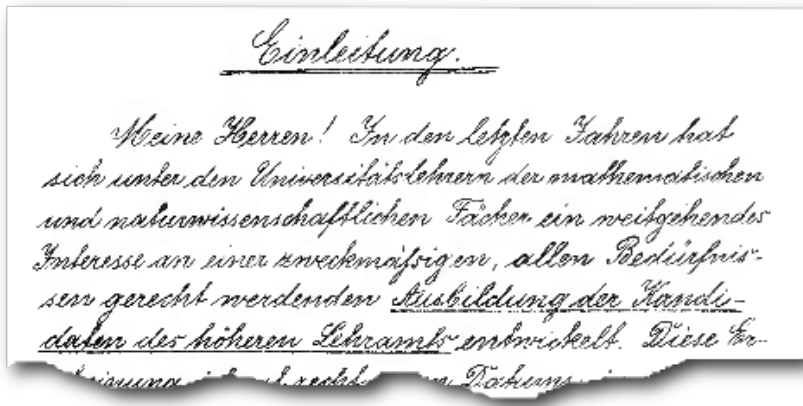 Einleitung.
Meine Herren! In den letzten Jahren hat
sich unter den Universitätslehrern der mathematischen
und naturwissenschaftlichen Fächer ein weitgehendes
Interesse an einer zweckmäßigen, allen Bedürfnis-
sen gerecht werdenden Ausbildung der Kandi-
daten des höheren Lehramts entwickelt. Diese Er-
recht Datums